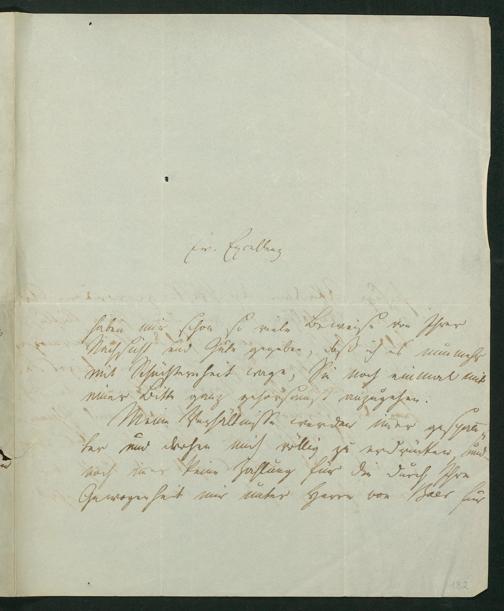 Ew. Excellenz
haben mir schon so viele Beweise von Ihrer
Nachsicht und Güte gegeben, daß ich es nunmehr
mit Schüchternheit wage, Sie noch einmal mit
einer Bitte ganz gehorsamst anzugehen.
Meine Verhältnisse werden immer
ter und drohen mich völlig zu erdrücken, und
noch immer keine Zahlung für die durch Ihre
Gewogenheit mir unter Herrn von Baer für
182